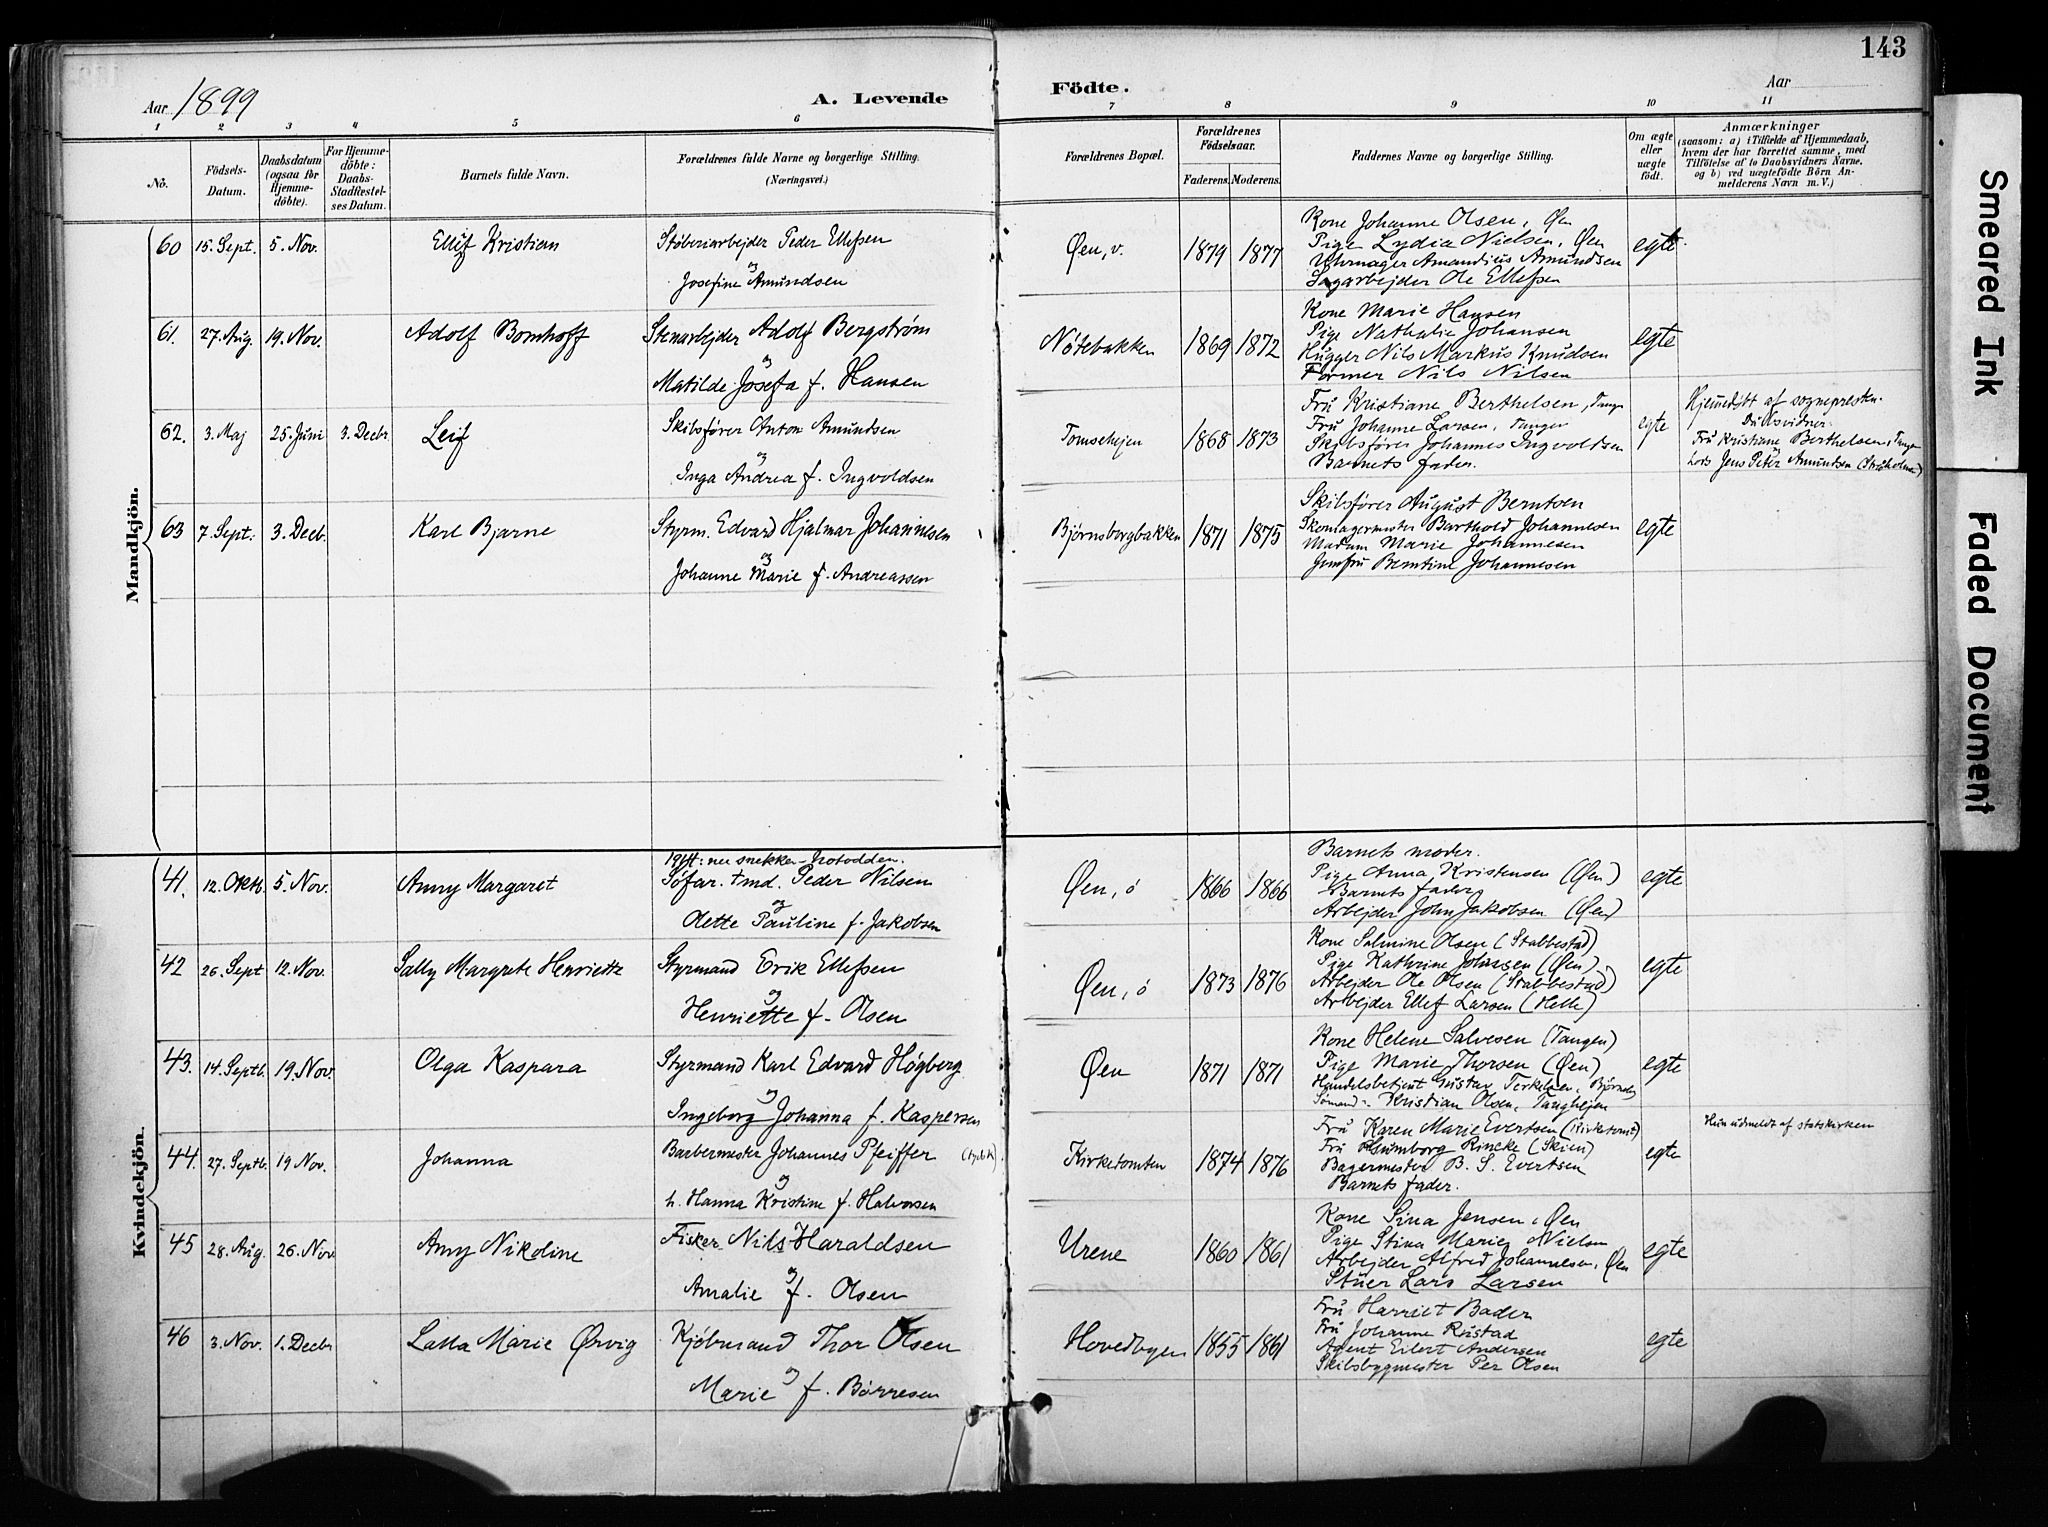 143
Aar 1899
A. Levende
Födte.
Aar
1 2 3 4 5 6 7 8 9 10 11
No.
Födsels-Datum.
Daabsdatum (ogsaa for Hjemme-döbte).
For Hjemme-döbte: Daabs-Stadfæstel-ses Datum.
Barnets fulde Navn.
Forældrenes fulde Navne og borgerlige Stilling.
(Næringsvei.)
Forældrenes Bopæl.
Forældrenes Födselsaar.
Faderens. Moderens.
Faddernes Navne og borgerlige Stilling.
Om ægte eller uægte födt.
Anmærkninger
(saasom: a) i Tilfælde af Hjemmedaab, hvem der har forrettet samme, med Tilföielse af to Daabsvidners Navne, og b) ved uægtefödte Börn An-melderens Navn m. V.)
Mandkjön.
60 15. Sept. 5. Nov. Ellif Kristian Støberiarbejder Peder Ellefsen
og
Josefine Amundsen
Øen, v. 1879 1877
Kone Johanne Olsen, Øen
Pige Lydia Nielsen, Øen
Uhrmager Amandius Amundsen
Sagarbejder Ole Ellefsen
egte
61. 27. Aug. 19. Nov. Adolf Bomhoff Stenarbejder Adolf Bergstrøm
og
Matilde Josefa f. Hansen
Nötebakken 1869 1872
Kone Marie Hansen
Pige Nathalie Johansen
Hugger Nils Markus Knudsen
Former Nils Nilsen
egte
62. 3. Maj 25. Juni 3. Decbr Leif Skibsfører Anton Amundsen
og
Inga Andrea f. Ingvoldsen
1868 1873
Fru Kristiane Berthelsen, Tangen
Fru Johanne Larsen, Tangen
Skibsfører Johannes Ingvoldsen
Barnets fader.
egte
Hjemedøbt af sognepresten.
Fru Kristiane Berthelsen, Tangen
Lods Jens Peter Amundsen
63 7. Sept. 3. Decb. Karl Bjarne Styrm. Edvard Hjalmar Johannesen
og
Johanne Marie f. Andreassen
Bjørnsborgbakken 1871 1875
Skibsfører August Berntsen
Skomagermester Barthold Johannesen
Madam Marie Johannesen
Jomfru Berntine Johannesen
egte
Kvindekjön.
41. 12. Oktb. 5. Nov. Anny Margaret
1914: nu snekker - Notodden.
Søfar. tmd. Peder Nilsen
og
Olette Pauline f. Jakobsen
Øen, ö 1866 1866
Barnets moder.
Pige Anna Kristensen (Øen)
Barnets fader
Arbejder John Jakobsen (Øen)
egte
42 26. Sept 12. Nov. Sally Margrete Henriette Styrmand Erik Ellefsen
og
Henriette f. Olsen
Øen, ö 1873 1876
Kone Salmine Olsen (Stabbestad)
Pige Kathrine Johnsen (Øen)
Arbejder Ole Olsen (Stabbestad)
Arbejder Ellef Larsen (Helle)
egte
43. 14. Septb. 19. Nov. Olga Kaspara Styrmand Karl Edvard Högberg
og
Ingeborg Johanna f. Kaspersen
Øen 1871 1871
Kone Helene Salvesen (Tangen)
Pige Marie Thorsen (Øen)
Handelsbetjent Gustav Terkelsen,
Sømand Kristian Olsen,
egte
44. 27. Septb. 19 Nov. Johanna Barbermester Johannes Pfeiffer
og
h. Hanna Kristine f. Halvorsen
Kirketomten 1874 1876
Fru Karen Marie Evertsen (Kirketomt)
Fru Rincke (Skien)
Bagermester B. S. Evertsen
Barnets fader.
egte
Hun udmeldt af statskirken
45 28. Aug. 26. Nov Anny Nikoline Fisker Nils Haraldsen
og
Amalie f. Olsen
Urene 1860 1861
Kone Sina Jensen, Øen
Pige Stina Marie Nielsen
Arbejder Alfred Johannesen, Øen
Stuer Lars Larsen
egte
46 3. Nov. 1. Decbr Lalla Marie Ørvig Kjöbmand Thor Olsen
og
Marie f. Börresen
Hovedbyen 1855 1861
Fru Harriet Bader
Fru Johanne Rustad
Agent Eilert Andersen
Skibsbygmester Per Olsen
egte
Smeared Ink
Faded Document